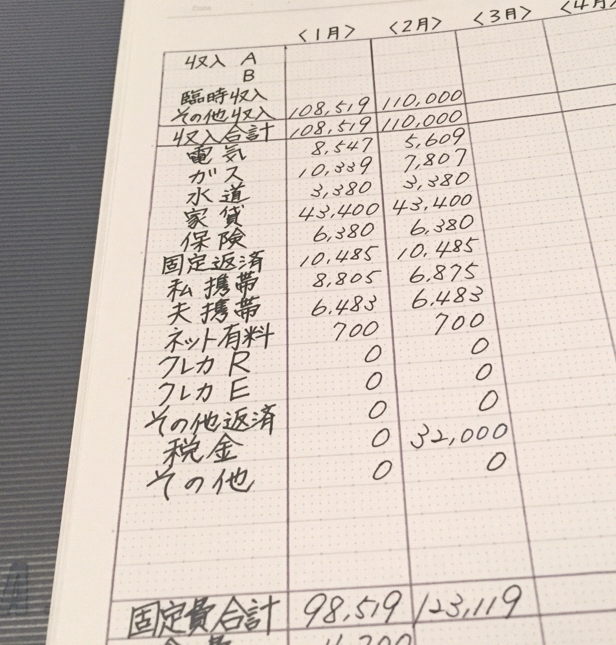 〈1月〉 〈2月〉 〈3月〉 〈4月
収入 A
B
臨時収入
その他収入 108,519 110,000
収入合計 108,519 110,000
電気 8,547 5,609
ガス 10,339 7,807
水道 3,380 3,380
家賃 43,400 43,400
保険 6,380 6,380
固定返済 10,485 10,485
私携帯 8,805 6,875
夫携帯 6,483 6,483
ネット有料 700 700
クレカ R 0 0
クレカ E 0 0
その他返済 0 0
税金 0 32,000
その他 0 0
固定費合計 98,519 123,119